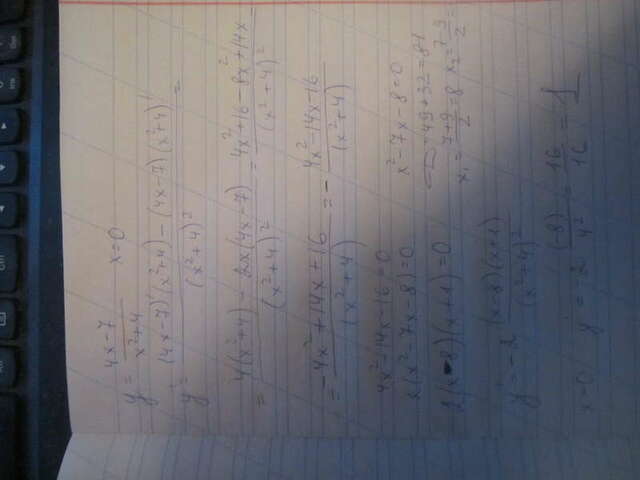 y = (4x-7)/(x²+4) x=0
y' = ((4x-7)'(x²+4) - (4x-7)(x²+4)')/(x²+4)² =
= (4(x²+4) - 2x(4x-7))/(x²+4)² = (4x²+16-8x²+14x)/(x²+4)²
= (-4x²+14x+16)/(x²+4) = - (4x²-14x-16)/(x²+4)
4x²-14x-16=0
2(x²-7x-8)=0
2(x-8)(x+1)=0
x²-7x-8=0
=49+32=81
x₁=(7+9)/2=8 x₂=(7-9)/2=
y' = -2 (x-8)(x+1)/(x²+4)²
x=0 y' = -2 (-8)/4² = 16/16 = 1